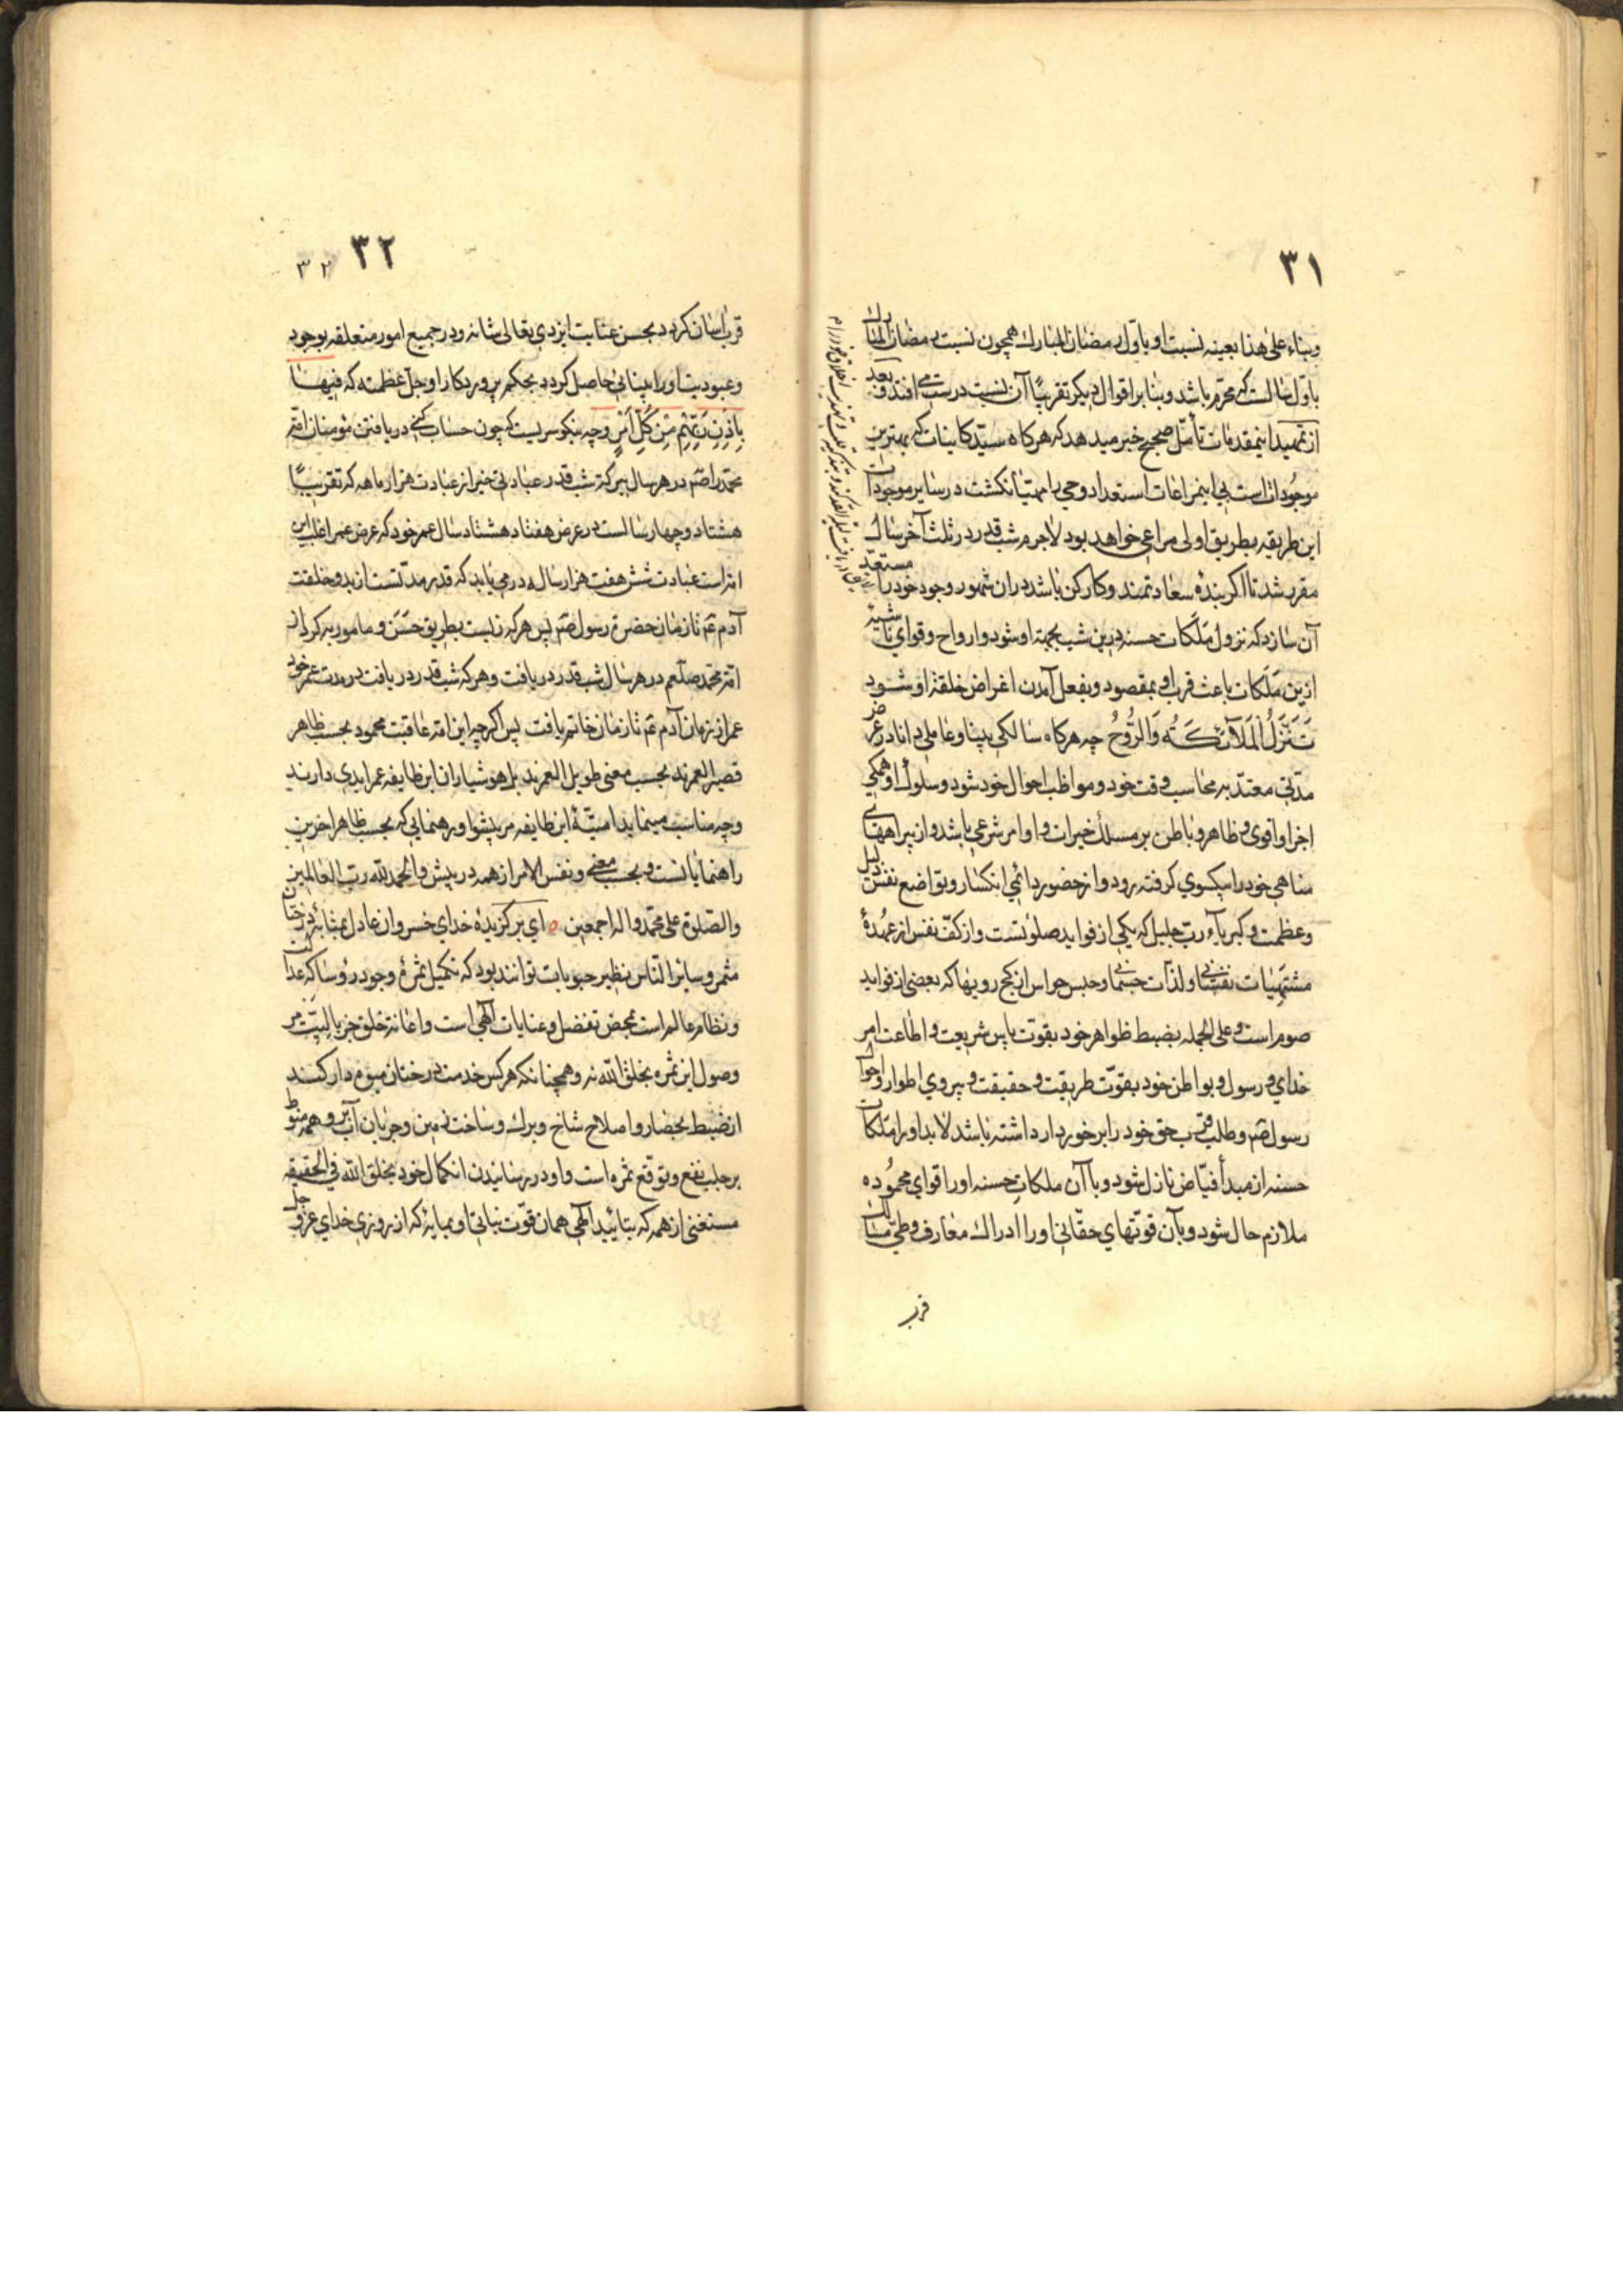 ۳۱
وبناء علی هذا بعینه نسبت او باوّل رمضان المبارك همچون نسبت رمضان المبارك
باوّل سالست که محرّم باشد وبنا بر اقوال دیکر تقریبًا آن نسبت درست می افتد وبعد
از تمهید اینمقدمات تأمّل صحیح خبر میدهد که هرکاه سیّد کاینات که بهترین
موجوداتست بی اینمراعات استعداد وحی را مهیّا نکشت در سایر موجودات
این طریقه بطریق اولی مراعی خواهد بود لاجرم شب قدر در ثلث آخر سال
مقرر شد تا اکر بندهٔ سعادتمند وکارکن باشد دران شهور وجود خود را مستعدّ
آن سازد که نزول ملَکات حسنه درین شب بجهة او شود وارواح وقوای ناشیه
ازین ملَکات باعث قرب او بمقصود وبفعل آمدن اغراض خلقة او شود
تَنَزَّلُ الْمَلَآئِكَـةُ وَالرُّوحُ چه هرکاه سالکی بینا وعاملی دانا در عرض
مدّتی معتدّ به محاسب وقت خود ومواظب احوال خود شود وسلوك او همکی
اجرا واقوی وظاهر وباطن بر مسلك خیرات واوامر شرعی باشد واز بیراهه‌ای
مناهی خود را بیکسوی کرفته رود واز حضور دائمی انکسار وتواضع نفس ذلیل
وعظمت وکبریآء ربّ جلیل که یکی از فواید صلوتست واز کفّ نفس از عهدهٔ
مشتهیات نفسانی ولذّات جسمانی وحبس حواس از کج رویها که بعضی از فواید
صوم است وعلی الجمله بضبط ظواهر خود بقوّت پاس شریعت واطاعت امر
خدای ورسول وبواطن خود بقوّت طریقت وحقیقت وپیروی اطوار واحوال
رسول صم وطلب قرب حق خود را برخوردار داشته باشد لابد او را ملَکات
حسنه از مبدأ فیّاض نازل شود وبا آن ملکاتِ حسنه او را قوای محموُده
ملازم حال شود وبآن قوّتهای حقّانی او را ادراك معارف وطیّ مسالك
قرب
۳۲
۳۲
قرب آسان کردد بحسن عنایت ایزدی تعالی شانه ودر جمیع امور متعلقه بوجود
وعبودیت او را بینائی حاصل کردد بحکم پروردکار او جلّ عظمته که فِیهَـا
بِاِذْنِ رَبِّهِمْ مِنْ كُلِّ اَمْرٍ وچه نیکو سریست که چون حساب کنی دریافتن مؤمنان امّة
محمّد را صم در هر سال ببرکة شب قدر عبادتی خیر از عبادت هزار ماهه که تقریبًا
هشتاد وچهار سالست در عرض هفتاد هشتاد سال عمر خود که عرض عمر اغلب این
امّة است عبادت شش هفت هزار ساله درمی یابد که قدر مدّتست از بدو خلقت
آدم عم تا زمان حضرة رسول صم پس هرکه زیست بطریق حَسَن ومأمور به کرد از
امّة محمّد صلعم در هر سال شب قدر دریافت وهرکه شب قدر دریافت در مدت عمر خود
عمر از زمان آدم عم تا زمان خاتم یافت پس اکرچه این امّة عاقبت محمود بحسب ظاهر
قصیر العمرند بحسب معنی طویل العمرند بل هوشیاران این طایفه عمر ابدی دارند
وچه مناسب مینماید امّتیّهٔ این طایفه مر پیشوا ورهنمایی که بحسب ظاهر آخرین
راهنمایانست وبحسب معنی ونفس الامر از همه در پیش والحمد لله ربّ العالمین
والصّلوة علی محمّد واله اجمعین ٥ ای برکزیدهٔ خدای خسروان عادل بمثابهٔ درختان
مثمر وسایر النّاس نظیر حبوبات توانند بود که تکمیل ثمرهٔ وجود رؤسا که عدالت
ونظام عالم است بمحض تفضل وعنایات آلهی است واعانة خلق جز بالیّت مر
وصول این ثمره بخلق اللّه نه وهمچنانکه هرکس خدمت درختان میوه دار کنـد
از ضبط بحصار واصلاح شاخ وبرك وساختن زمین وجریان آب و همه منوط
بر جلب نفع وتوقع ثمره است واو در رسانیدن انکمال خود بخلق اللّه فی الحقیقه
مستغنی از همه که بتائید آلهی همان قوّت نباتی او بمایهٔ که از روزی خدای عز وجل